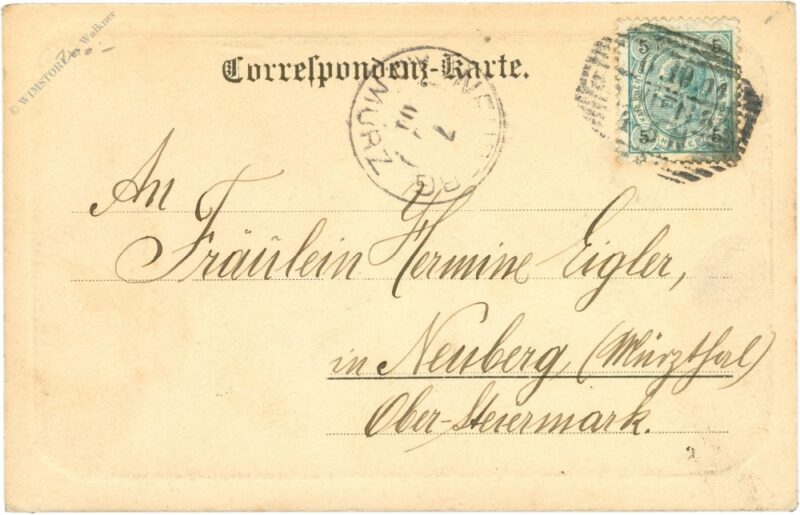 © WIMSTORY by Walkner
Correspondenz-Karte.
5 5
5 5
NEUBERG
MÜRZ
An
Fräulein Hermine Eigler,
in Neuberg (Mürzthal)
Ober-Steiermark.